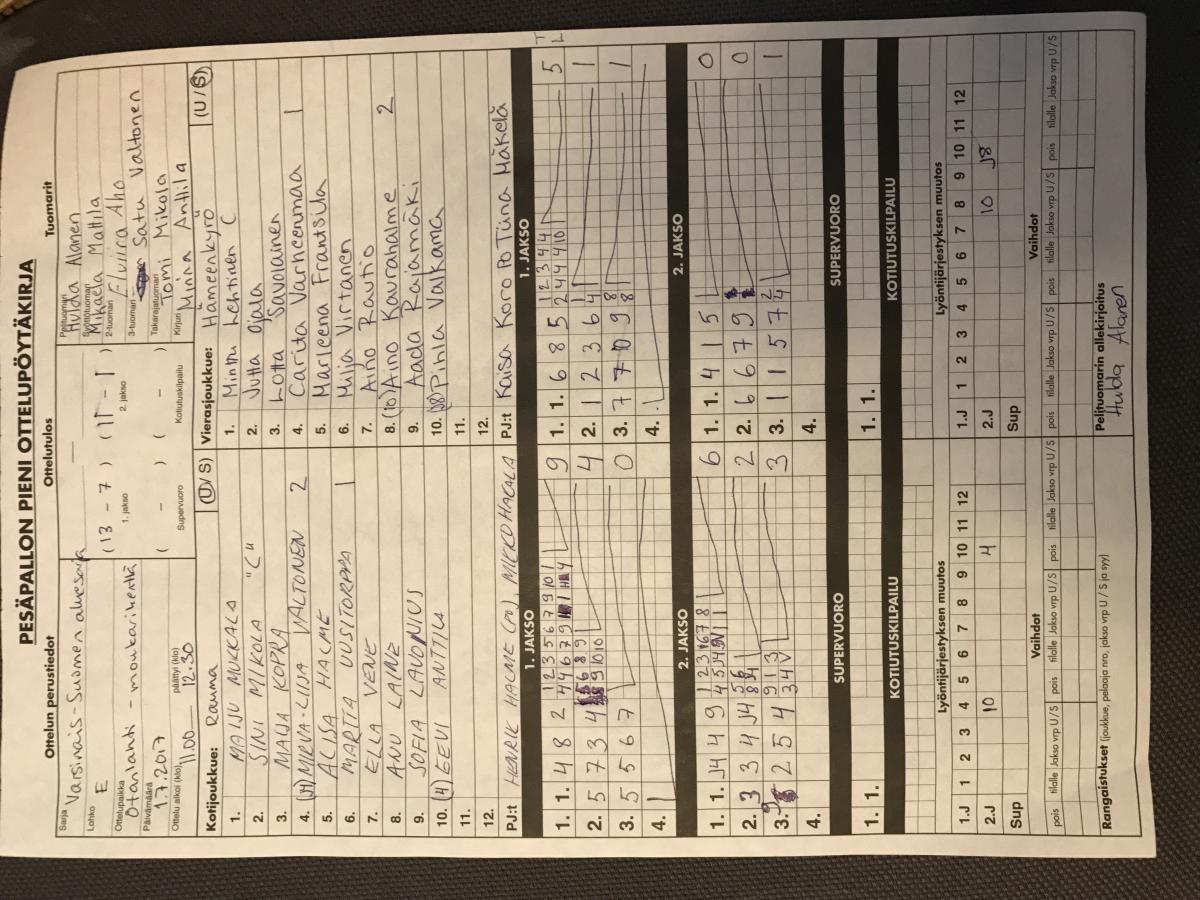 PESÄPALLON PIENI OTTELUPÖYTÄKIRJA
Ottelun perustiedot
Sarja Varsinais-Suomen aluesarja
Lohko E
Ottelupaikka Otanlahti - moukarikenttä
Päivämäärä 1.7.2017
Ottelu alkoi (klo) 11.00 päättyi (klo) 12.30
Ottelutulos
( 13 - 7 ) ( 11 - 1 )
1. jakso 2. jakso
( - ) ( - )
Supervuoro Kotiutuskilpailu
Tuomarit
Pelituomari Hulda Alanen
Syöttötuomari Mikaela Mattila
2-tuomari Elviira Aho
3-tuomari Satu Valtonen
Takarajatuomari Tomi Mikola
Kirjuri Minna Anttila
Kotijoukkue: Rauma (U / S)
1. MAIJU MUKKALA
2. SINI MIKOLA "C"
3. MAIJA KOPRA
4. (J4) MIRVA-LIISA VALTONEN 2
5. ALISA HALME
6. MARTTA UUSITORPPA 1
7. ELLA VENE
8. ANU LAINE
9. SOFIA LAVONIUS
10. (4) EEVI ANTTILA
11.
12.
PJ:t HENRIK HALME (PO), MIKKO HACALA
Vierasjoukkue: Hämeenkyrö (U / S)
1. Minttu Lehtinen C
2. Jutta Ojala
3. Lotta Savolainen
4. Carita Varheenmaa 1
5. Marleena Frantsila
6. Milja Virtanen
7. Aino Rautio
8. (10) Aino Kaurahalme 2
9. Aada Raijamäki
10. (J8) Pinja Valkama
11.
12.
PJ:t Kaisa Koro PO Tiina Mäkelä
1. JAKSO
1. 1. 4 8 2 9
2. 5 7 3 4 4
3. 5 5 6 7 0
4.
1. JAKSO
1. 1. 6 8 5 2 5
2. 1 2 3 6 4 1
3. 7 7 10 9 8 1
4.
2. JAKSO
1. 1. J4 4 9 6
2. 3 3 4 J4 2
3. 9 2 5 4 3
4.
2. JAKSO
1. 1. 4 1 5 0
2. 6 6 7 9 0
3. 1 1 5 7 1
4.
SUPERVUORO
1. 1.
SUPERVUORO
1. 1.
KOTIUTUSKILPAILU
KOTIUTUSKILPAILU
Lyöntijärjestyksen muutos
1.J 1 2 3 4 5 6 7 8 9 10 11 12
2.J 10 4
Sup
Lyöntijärjestyksen muutos
1.J 1 2 3 4 5 6 7 8 9 10 11 12
2.J 10 J8
Sup
Vaihdot
pois tilalle Jakso vrp U / S pois tilalle Jakso vrp U / S pois tilalle Jakso vrp U / S
Vaihdot
pois tilalle Jakso vrp U / S pois tilalle Jakso vrp U / S pois tilalle Jakso vrp U / S
Rangaistukset (joukkue, pelaaja nro, jakso vrp U / S ja syy)
Pelituomarin allekirjoitus
Hulda Alanen